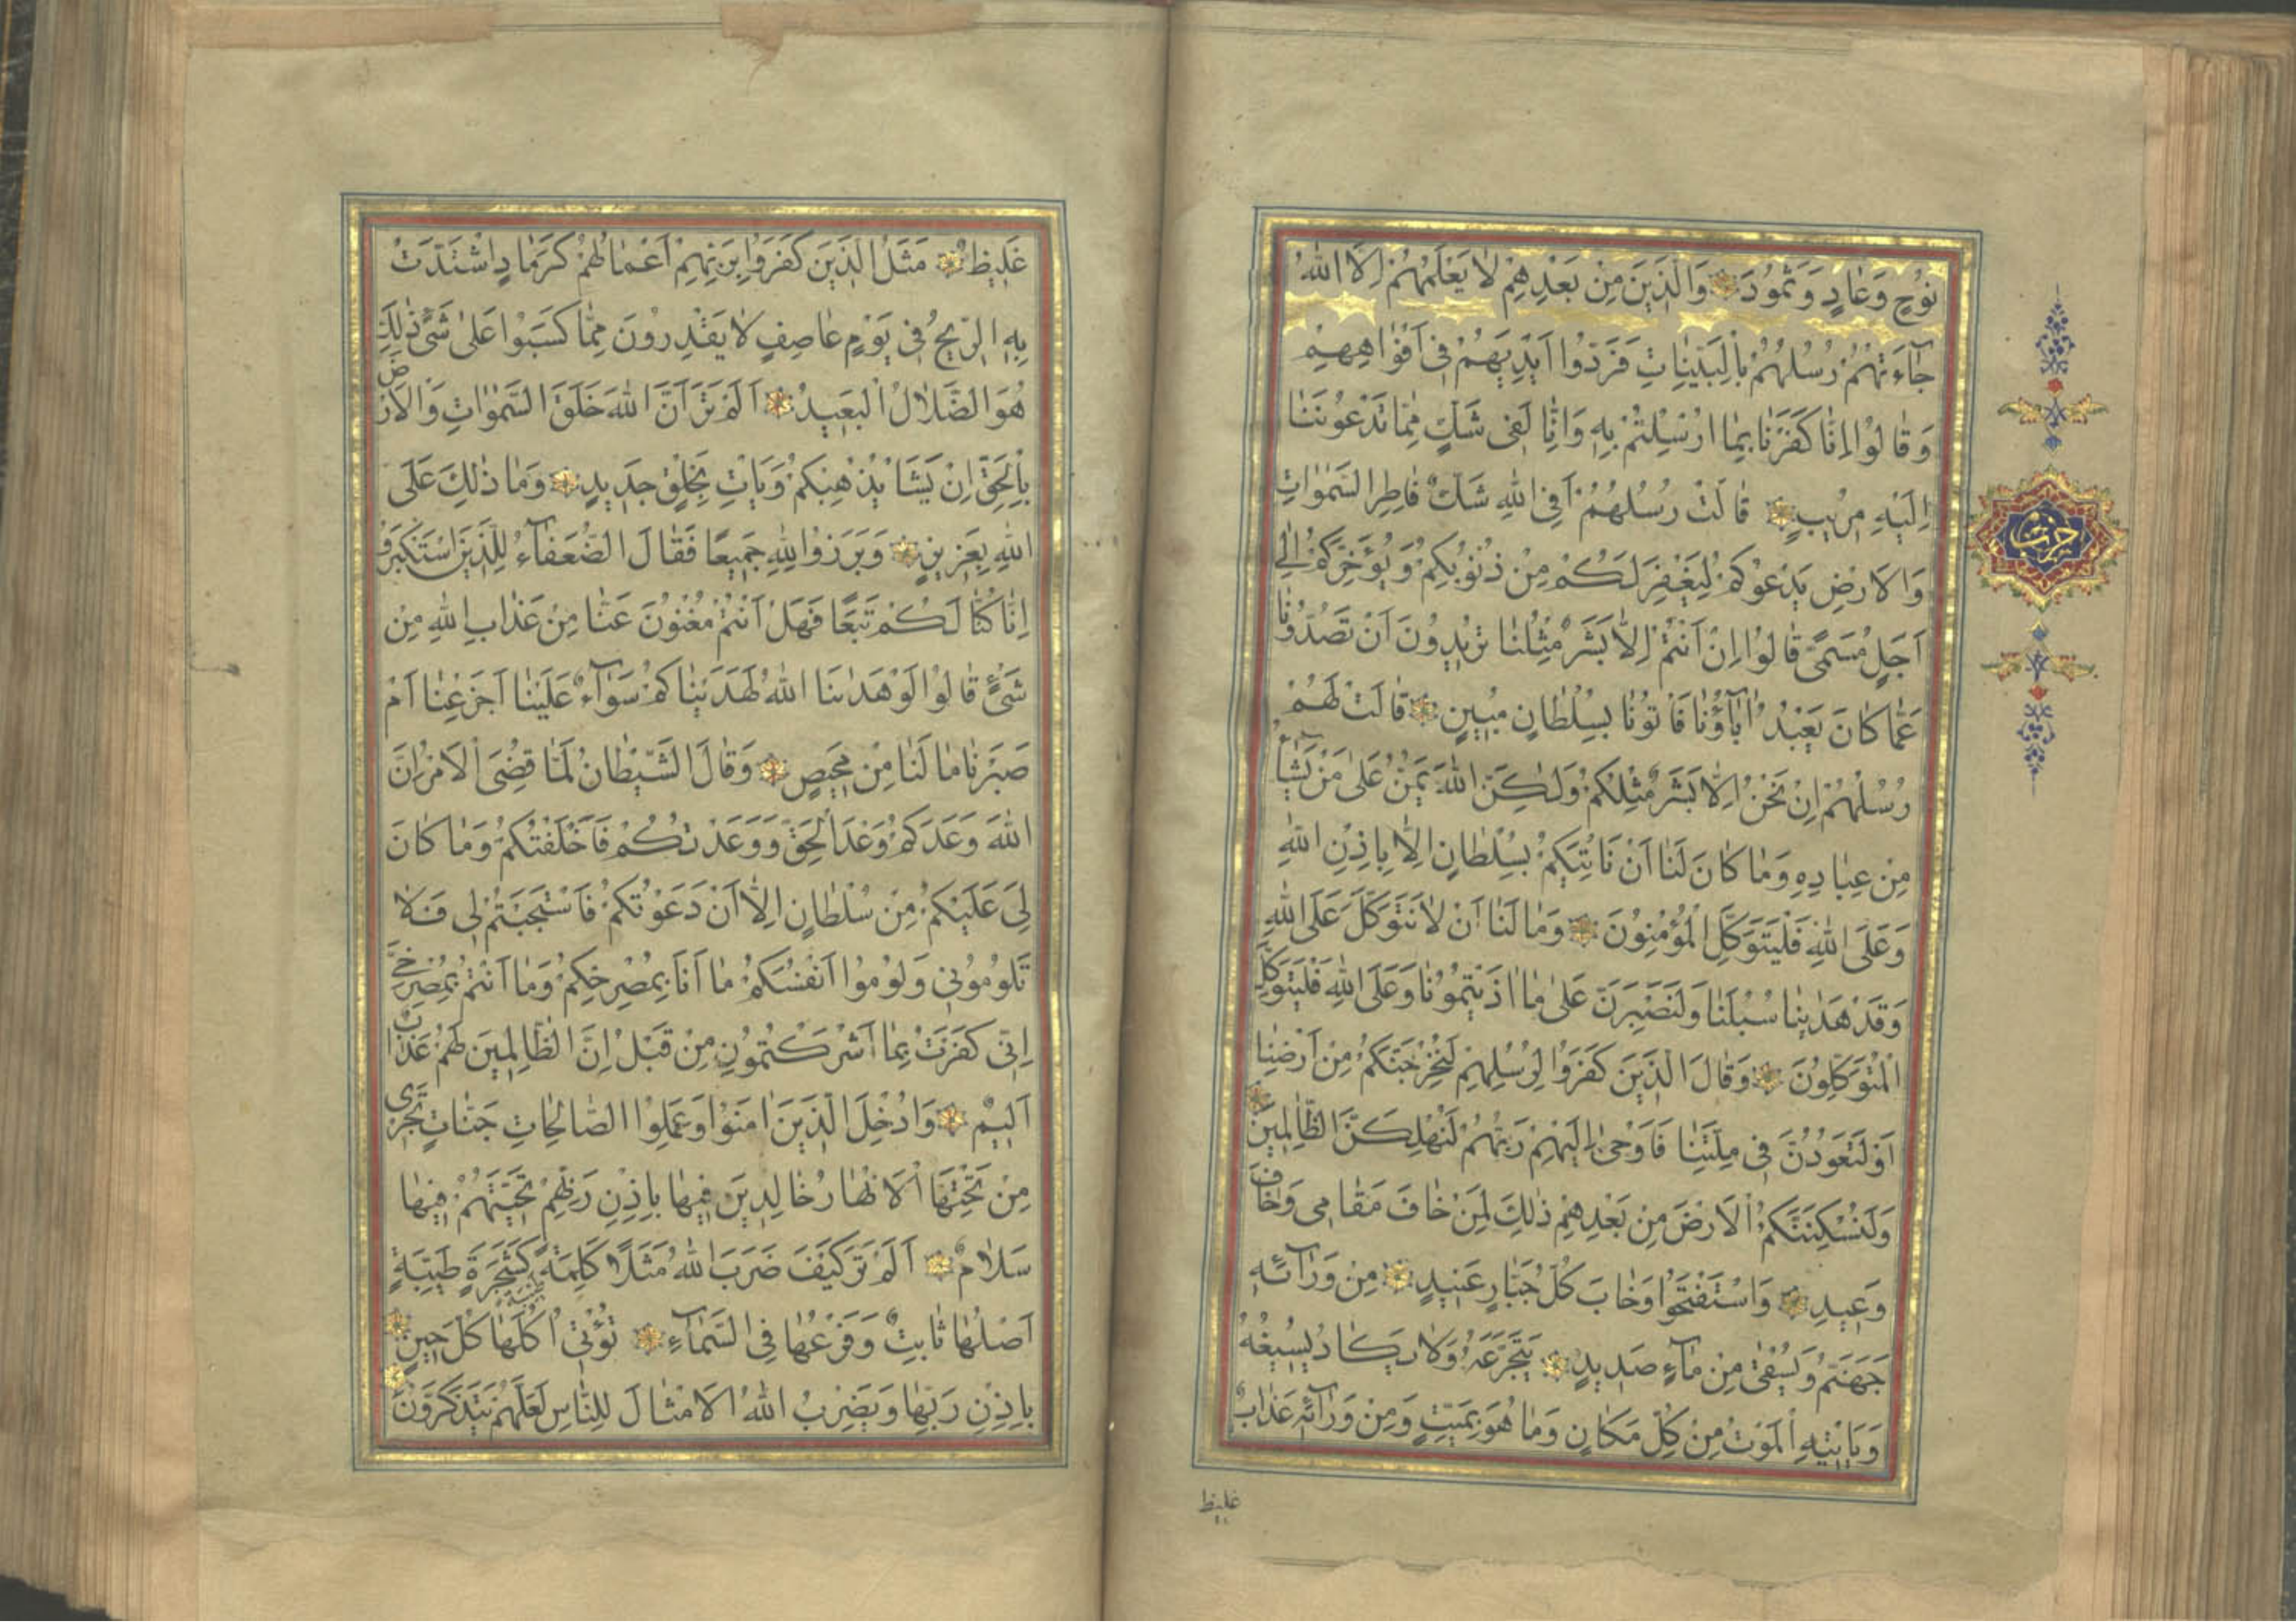 نُوحٍ وَعَادٍ وَثَمُودَ وَالَّذِينَ مِنْ بَعْدِهِمْ لَا يَعْلَمُهُمْ اِلَّا اللّٰهُ
جَآءَتْهُمْ رُسُلُهُمْ بِالْبَيِّنَاتِ فَرَدُّوا اَيْدِيَهُمْ فِى اَفْوَاهِهِمْ
وَقَالُوا اِنَّا كَفَرْنَا بِمَا اُرْسِلْتُمْ بِهِ وَاِنَّا لَفِى شَكٍّ مِمَّا تَدْعُونَنَا
اِلَيْهِ مُرِيبٍ قَالَتْ رُسُلُهُمْ اَفِى اللّٰهِ شَكٌّ فَاطِرِ السَّمٰوَاتِ
وَالْاَرْضِ يَدْعُوكُمْ لِيَغْفِرَ لَكُمْ مِنْ ذُنُوبِكُمْ وَيُؤَخِّرَكُمْ اِلٰى
اَجَلٍ مُسَمًّى قَالُوا اِنْ اَنْتُمْ اِلَّا بَشَرٌ مِثْلُنَا تُرِيدُونَ اَنْ تَصُدُّونَا
عَمَّا كَانَ يَعْبُدُ اٰبَآؤُنَا فَاْتُونَا بِسُلْطَانٍ مُبِينٍ قَالَتْ لَهُمْ
رُسُلُهُمْ اِنْ نَحْنُ اِلَّا بَشَرٌ مِثْلُكُمْ وَلٰكِنَّ اللّٰهَ يَمُنُّ عَلٰى مَنْ يَشَآءُ
مِنْ عِبَادِهِ وَمَا كَانَ لَنَا اَنْ نَاْتِيَكُمْ بِسُلْطَانٍ اِلَّا بِاِذْنِ اللّٰهِ
وَعَلَى اللّٰهِ فَلْيَتَوَكَّلِ الْمُؤْمِنُونَ وَمَا لَنَا اَنْ لَا نَتَوَكَّلَ عَلَى اللّٰهِ
وَقَدْ هَدٰينَا سُبُلَنَا وَلَنَصْبِرَنَّ عَلٰى مَا اٰذَيْتُمُونَا وَعَلَى اللّٰهِ فَلْيَتَوَكَّلِ
الْمُتَوَكِّلُونَ وَقَالَ الَّذِينَ كَفَرُوا لِرُسُلِهِمْ لَنُخْرِجَنَّكُمْ مِنْ اَرْضِنَا
اَوْ لَتَعُودُنَّ فِى مِلَّتِنَا فَاَوْحٰى اِلَيْهِمْ رَبُّهُمْ لَنُهْلِكَنَّ الظَّالِمِينَ
وَلَنُسْكِنَنَّكُمُ الْاَرْضَ مِنْ بَعْدِهِمْ ذٰلِكَ لِمَنْ خَافَ مَقَامِى وَخَافَ
وَعِيدِ وَاسْتَفْتَحُوا وَخَابَ كُلُّ جَبَّارٍ عَنِيدٍ مِنْ وَرَآئِهِ
جَهَنَّمُ وَيُسْقٰى مِنْ مَآءٍ صَدِيدٍ يَتَجَرَّعُهُ وَلَا يَكَادُ يُسِيغُهُ
وَيَاْتِيهِ الْمَوْتُ مِنْ كُلِّ مَكَانٍ وَمَا هُوَ بِمَيِّتٍ وَمِنْ وَرَآئِهِ عَذَابٌ
غليظ
حزب
غَلِيظٌ مَثَلُ الَّذِينَ كَفَرُوا بِرَبِّهِمْ اَعْمَالُهُمْ كَرَمَادٍ اشْتَدَّتْ
بِهِ الرِّيحُ فِى يَوْمٍ عَاصِفٍ لَا يَقْدِرُونَ مِمَّا كَسَبُوا عَلٰى شَىْءٍ ذٰلِكَ
هُوَ الضَّلَالُ الْبَعِيدُ اَلَمْ تَرَ اَنَّ اللّٰهَ خَلَقَ السَّمٰوَاتِ وَالْاَرْضَ
بِالْحَقِّ اِنْ يَشَاْ يُذْهِبْكُمْ وَيَاْتِ بِخَلْقٍ جَدِيدٍ وَمَا ذٰلِكَ عَلَى
اللّٰهِ بِعَزِيزٍ وَبَرَزُوا لِلّٰهِ جَمِيعًا فَقَالَ الضُّعَفَآءُ لِلَّذِينَ اسْتَكْبَرُوا
اِنَّا كُنَّا لَكُمْ تَبَعًا فَهَلْ اَنْتُمْ مُغْنُونَ عَنَّا مِنْ عَذَابِ اللّٰهِ مِنْ
شَىْءٍ قَالُوا لَوْ هَدٰىنَا اللّٰهُ لَهَدَيْنَاكُمْ سَوَآءٌ عَلَيْنَا اَجَزِعْنَا اَمْ
صَبَرْنَا مَا لَنَا مِنْ مَحِيصٍ وَقَالَ الشَّيْطَانُ لَمَّا قُضِىَ الْاَمْرُ اِنَّ
اللّٰهَ وَعَدَكُمْ وَعْدَ الْحَقِّ وَوَعَدْتُكُمْ فَاَخْلَفْتُكُمْ وَمَا كَانَ
لِىَ عَلَيْكُمْ مِنْ سُلْطَانٍ اِلَّا اَنْ دَعَوْتُكُمْ فَاسْتَجَبْتُمْ لِى فَلَا
تَلُومُونِى وَلُومُوا اَنْفُسَكُمْ مَا اَنَا بِمُصْرِخِكُمْ وَمَا اَنْتُمْ بِمُصْرِخِىَّ
اِنِّى كَفَرْتُ بِمَا اَشْرَكْتُمُونِ مِنْ قَبْلُ اِنَّ الظَّالِمِينَ لَهُمْ عَذَابٌ
اَلِيمٌ وَاُدْخِلَ الَّذِينَ اٰمَنُوا وَعَمِلُوا الصَّالِحَاتِ جَنَّاتٍ تَجْرِى
مِنْ تَحْتِهَا الْاَنْهَارُ خَالِدِينَ فِيهَا بِاِذْنِ رَبِّهِمْ تَحِيَّتُهُمْ فِيهَا
سَلَامٌ اَلَمْ تَرَ كَيْفَ ضَرَبَ اللّٰهُ مَثَلًا كَلِمَةً طَيِّبَةً كَشَجَرَةٍ طَيِّبَةٍ
اَصْلُهَا ثَابِتٌ وَفَرْعُهَا فِى السَّمَآءِ تُؤْتِى اُكُلَهَا كُلَّ حِينٍ
بِاِذْنِ رَبِّهَا وَيَضْرِبُ اللّٰهُ الْاَمْثَالَ لِلنَّاسِ لَعَلَّهُمْ يَتَذَكَّرُونَ